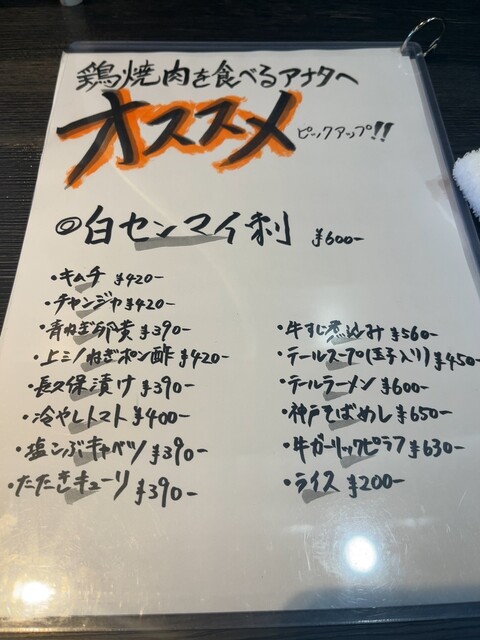 鶏焼肉を食べるアナタへ
オススメ ピックアップ!!
◎白センマイ刺 ¥600-
・キムチ ¥420-
・チャンジャ ¥420-
・青ねぎ卵黄 ¥390-
・上ミノねぎポン酢 ¥420-
・長久保漬け ¥390-
・冷やしトマト ¥400-
・塩こぶキャベツ ¥390-
・たたききゅーり ¥390-
・牛すじ煮込み ¥560-
・テールスープ(玉子入り) ¥450-
・テールラーメン ¥600-
・神戸そばめし ¥650-
・牛ガーリックピラフ ¥630-
・ライス ¥200-